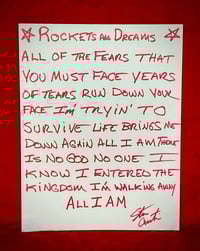 ROCKETS AND DREAMS
ALL OF THE FEARS THAT
YOU MUST FACE YEARS
OF TEARS RUN DOWN YOUR
FACE Im' TRYIN' TO
SURVIVE LIFE BRINGS ME
DOWN AGAIN ALL I AM THERE
IS NO GOD NO ONE I
KNOW I ENTERED THE
KINGDOM I'm WALKING AWAY
ALL I AM